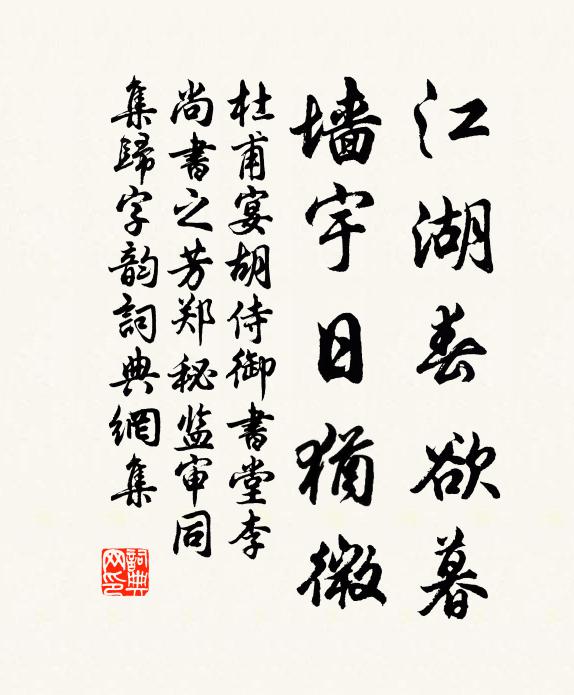 江湖春欲暮
墙宇日犹微
杜甫宴胡侍御书堂李
尚书之芳郑秘监审同
集归字韵词典网集
词典网印